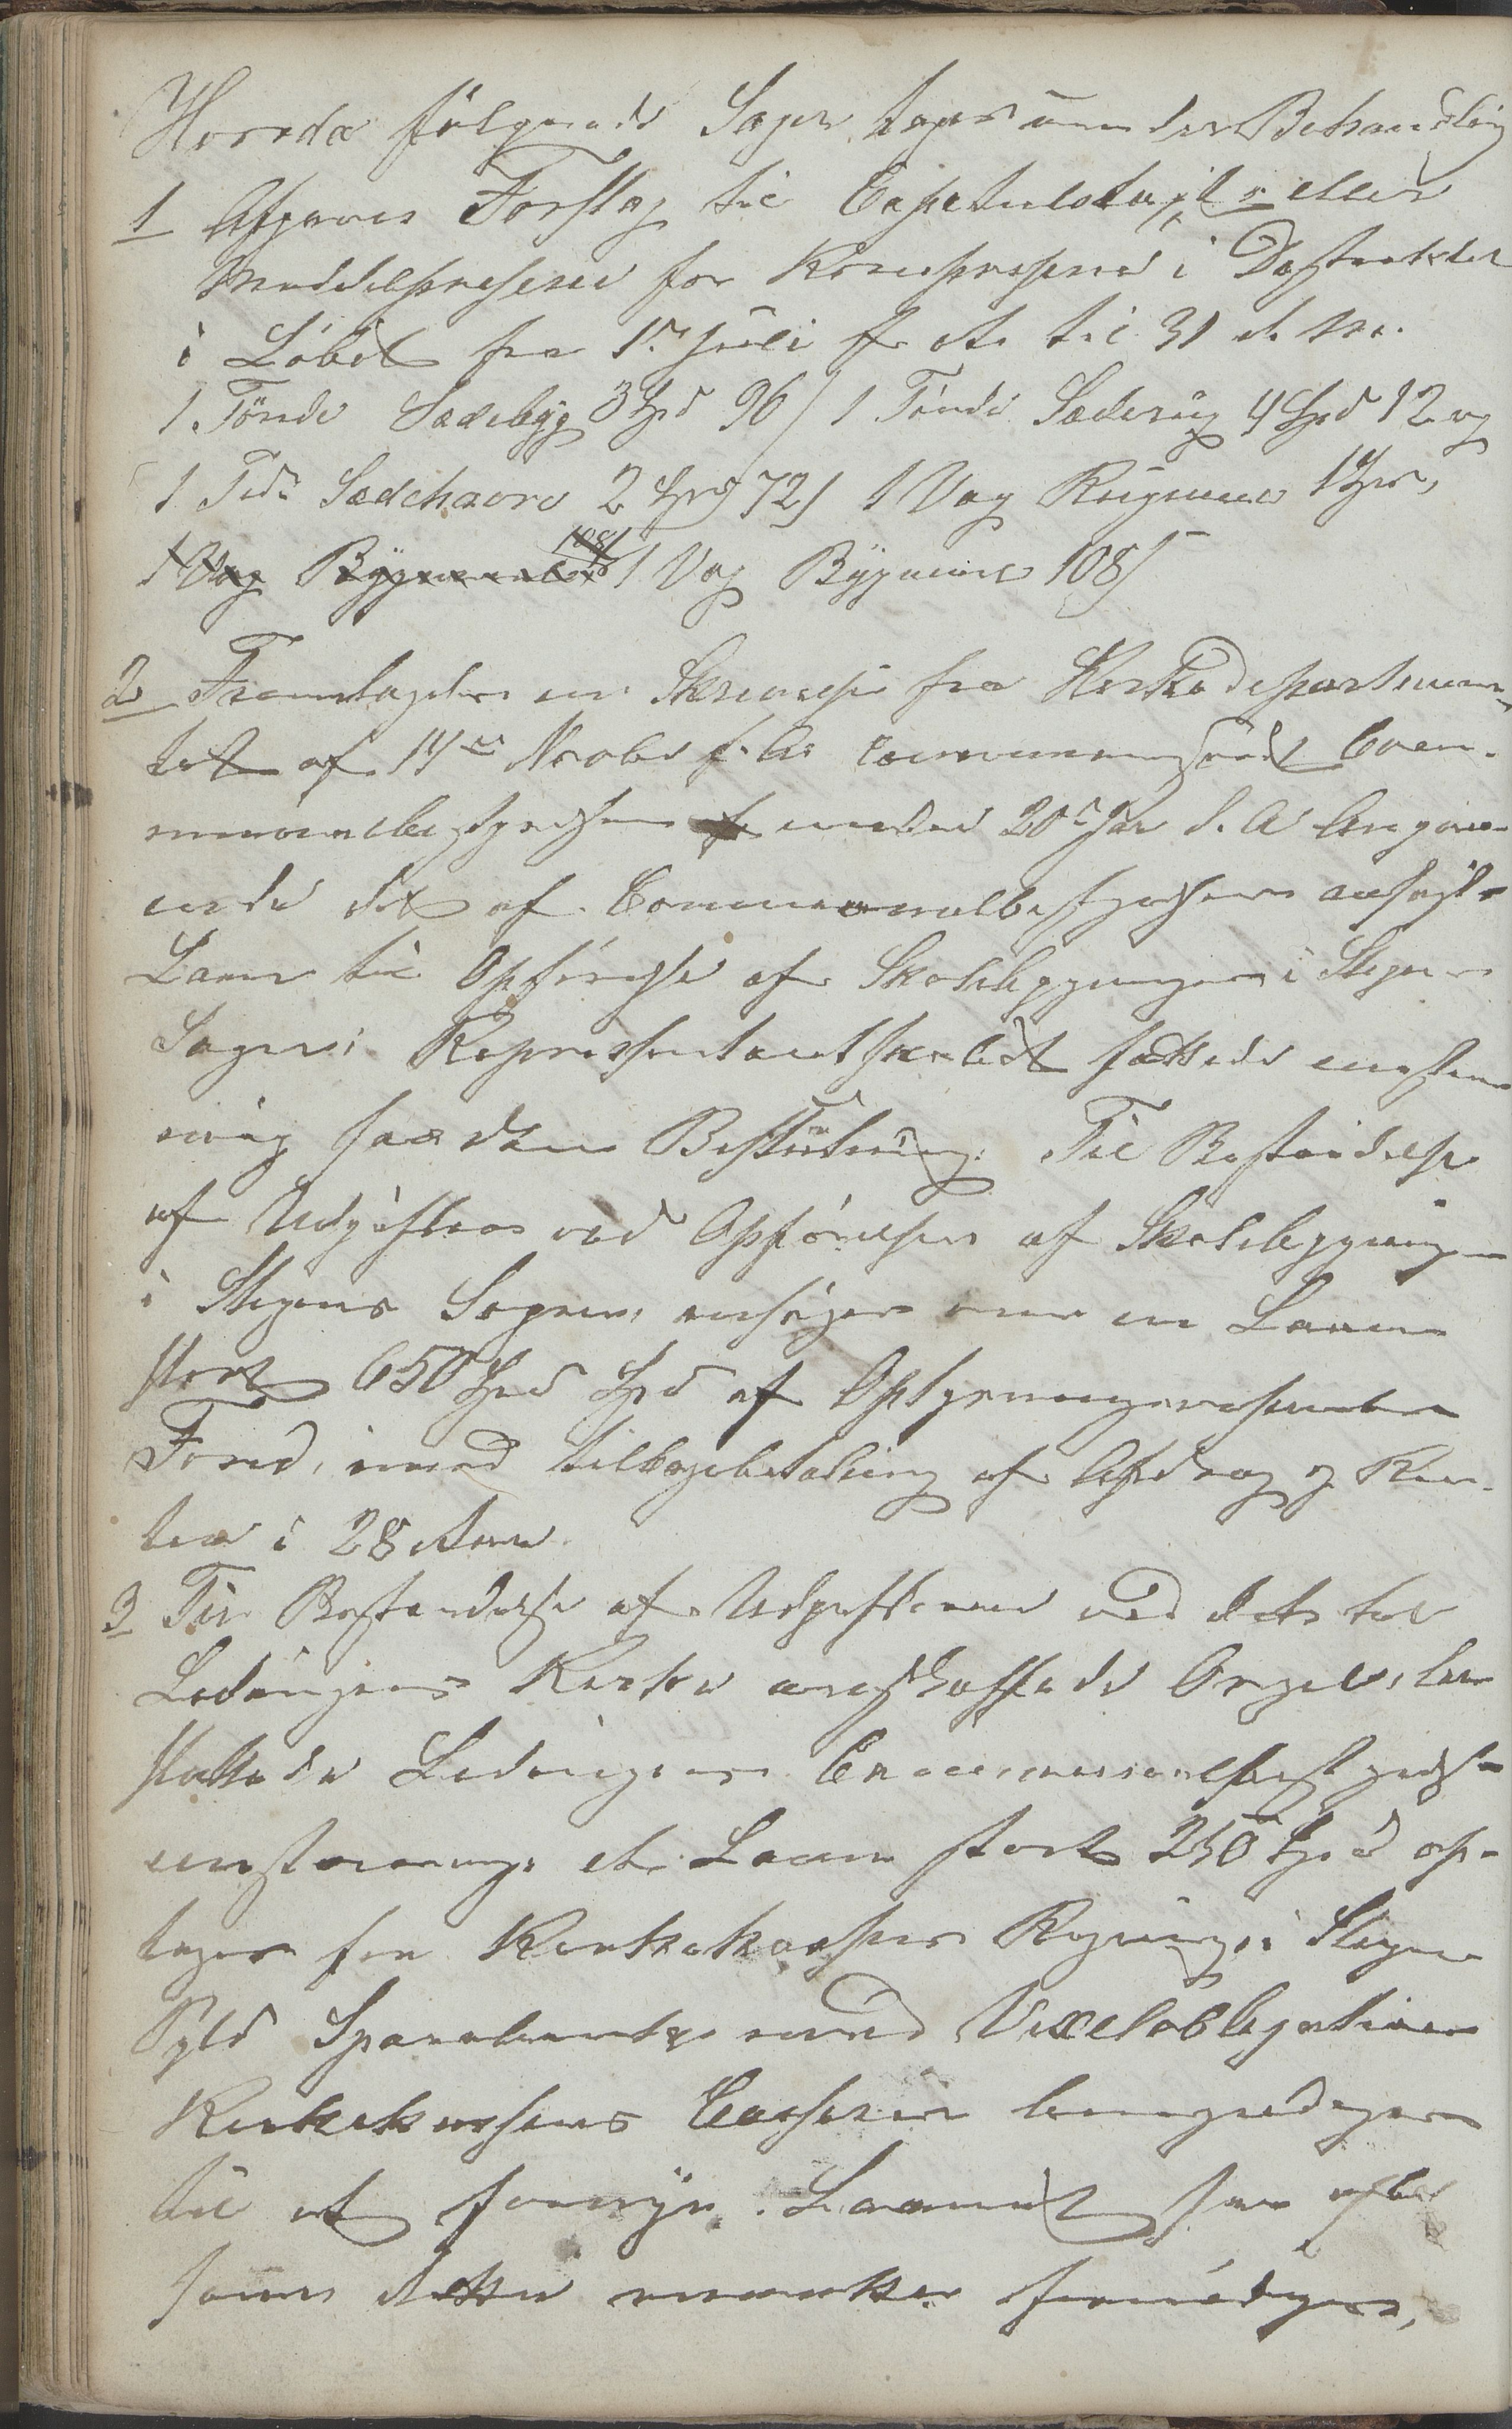 Hvorda følgende Sager toges under Behandling
1 Afgaves Forslag til Capitulstaxt eller
Middelpriserne for Kornpriserne i Distriktet
i Løbet fra 1ste Juli f A til 31 d. M.
1 Tønde Sædebyg 3 Spd 96 / 1 Tønde Sæderug 4 Spd 12 og
1 Tøde Sædehavre 2 Spd 72 / 1 Vog Rugmeel 1 Spd,
1 Vog Bygmeel 108/ 1 Vog Bygmeel 108/
2 Fremlagdes en Skrivelse fra Kirkedepartemen-
tet af 14de Novbr f. A. communiceredt Com-
munebestyrelsen under 20de Jan d. A angaa-
ende det af Communalbestyrelsen ansøgte
Laan til Opførelse af Skolebygninger i Stegens
Sogn; Repræsentantskabet fattede enstem-
mig saadan Beslutning: Til Bestridelse
af Udgifterne ved Opførelsen af Skolebygninger
i Stegens Sogn, ansøges om en Laan
stort 650 Spd Spd af Oplysningsvæsenets
Fond, imod tilbagebetaling af Afdrag og Ren-
ter i 28 Aar.
3 Til Bestridelse af Udgifterne ved det til
Ledingens Kirke anskaffede Orgel, be-
sluttede Ledingens Communalbestyrelse
enstemmig, et Laan stort 250 Spd op-
tages for Kirkekassens Regning i Stegens
Spld Sparebank mod Vexelobligation
Kirkekassens Casserer bemyndiges
til at fornye Laanet saa ofte
som dette maatte fornødiges,